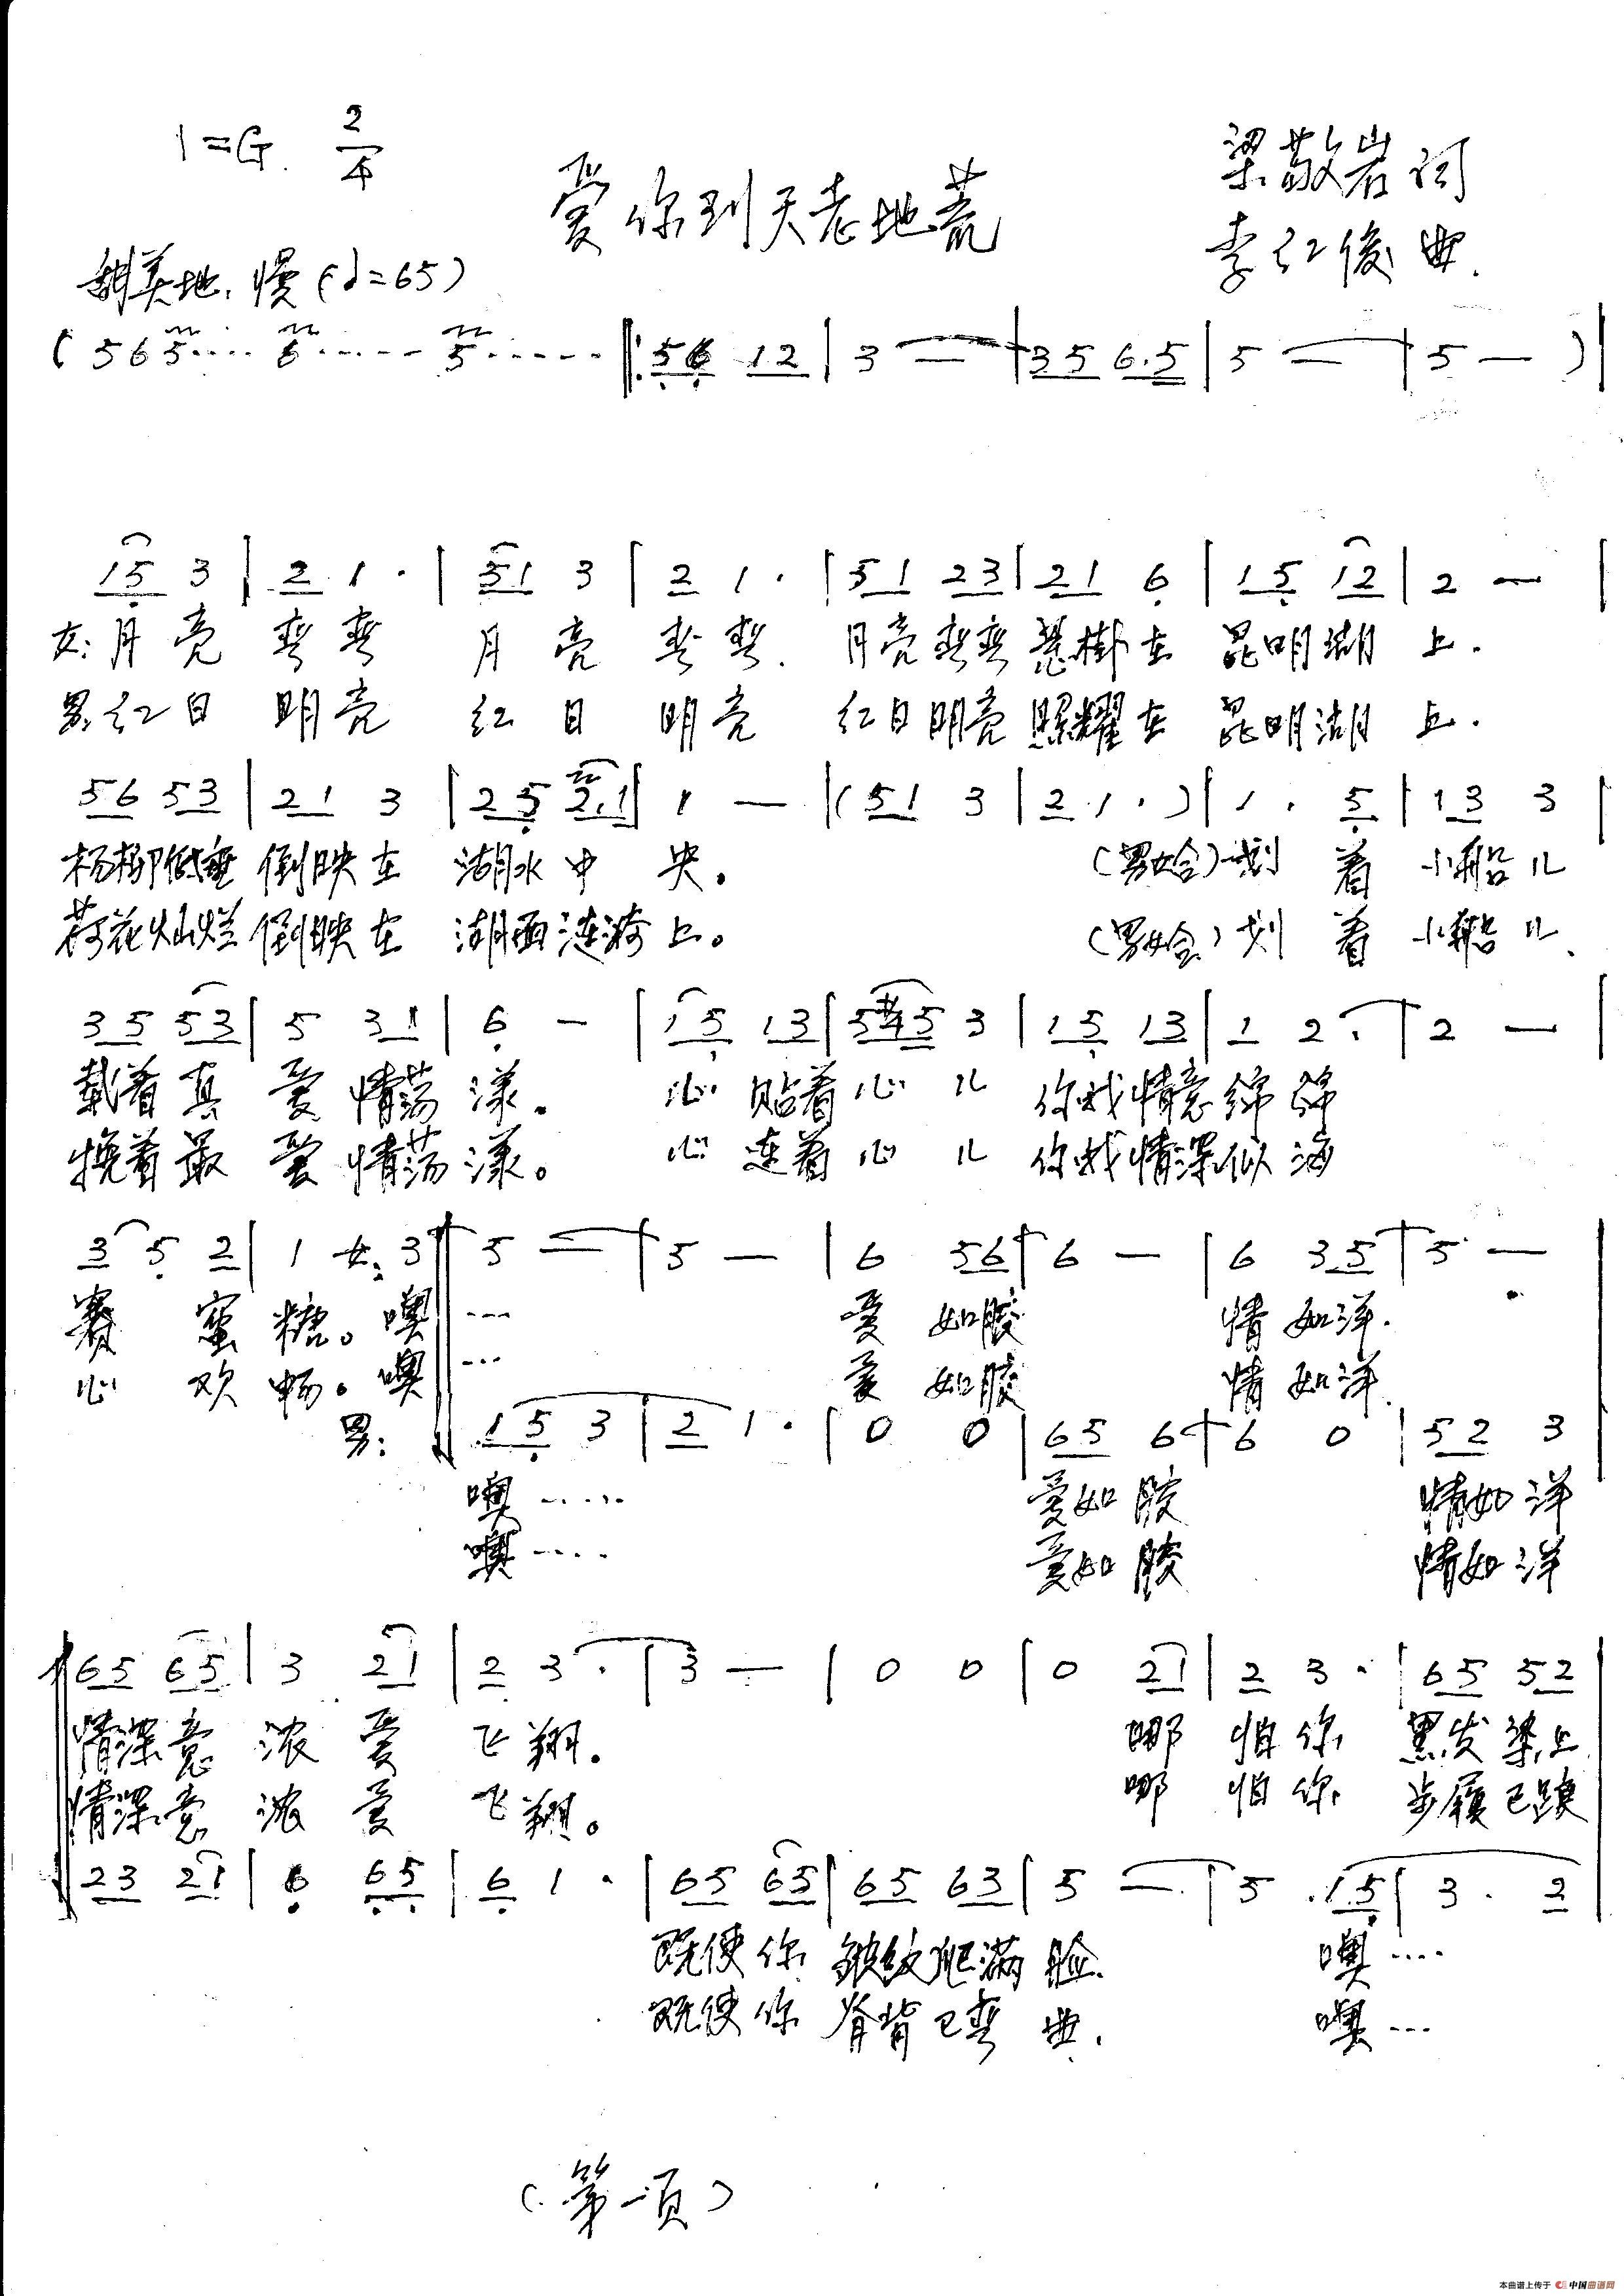 1=G. 2/4
爱你到天老地荒
梁敬岩词
李红俊曲.
甜美地,慢(♩=65)
( 5 6 5···· 6······ 5······ ‖: 56 12 | 3 — | 35 6.5 | 5 — | 5 — ) |
15 3 | 2 1 · | 51 3 | 2 1 · | 51 23 | 21 6 | 15 12 | 2 — |
女:月亮 弯弯 月亮 弯弯. 月亮弯弯 悬掛在 昆明湖 上.
男:红日 明亮 红日 明亮 红日明亮 照耀在 昆明湖 上.
56 53 | 21 3 | 25 2.1 | 1 — | (51 3 | 2 1 · ) | 1 · 5 | 13 3 |
杨柳低垂 倒映在 湖水中 央。 (男女合)划 着 小船儿
荷花灿烂 倒映在 湖面涟漪 上。 (男女合)划 着 小船儿.
35 53 | 5 31 | 6 — | 15 13 | 5#45 3 | 15 13 | 1 2 · | 2 — |
载着真 爱 情荡 漾. 心 贴着 心儿 你我情意 绵绵
挽着最 爱 情荡 漾。 心 连着 心儿 你我情深 似海
3 5 2 | 1 女: 3 ‖ 5 — | 5 — | 6 56 | 6 — | 6 35 | 5 — |
赛 蜜 糖。 噢 ··· 爱 如胶 情 如洋.
心 欢 畅。 噢 ··· 爱 如胶 情 如洋.
男: ‖ 15 3 | 2 1 · | 0 0 | 65 6 | 6 0 | 52 3
噢 ····· 爱如 胶 情如 洋
噢 ···· 爱如 胶 情如 洋
65 65 | 3 21 | 2 3 · | 3 — | 0 0 | 0 21 | 2 3 · | 65 52
情深意 浓 爱 飞 翔. 哪 怕 你 黑发染上
情深意 浓 爱 飞 翔。 哪 怕 你 步履已踉
23 21 | 6 65 | 6 1 · | 65 65 | 65 63 | 5 — | 5 · 15 | 3 · 2
既使你 皱纹爬满 脸. 噢 ····
既使你 脊背已弯 曲. 噢 ···
(第一页)
本曲谱上传于 中国曲谱网